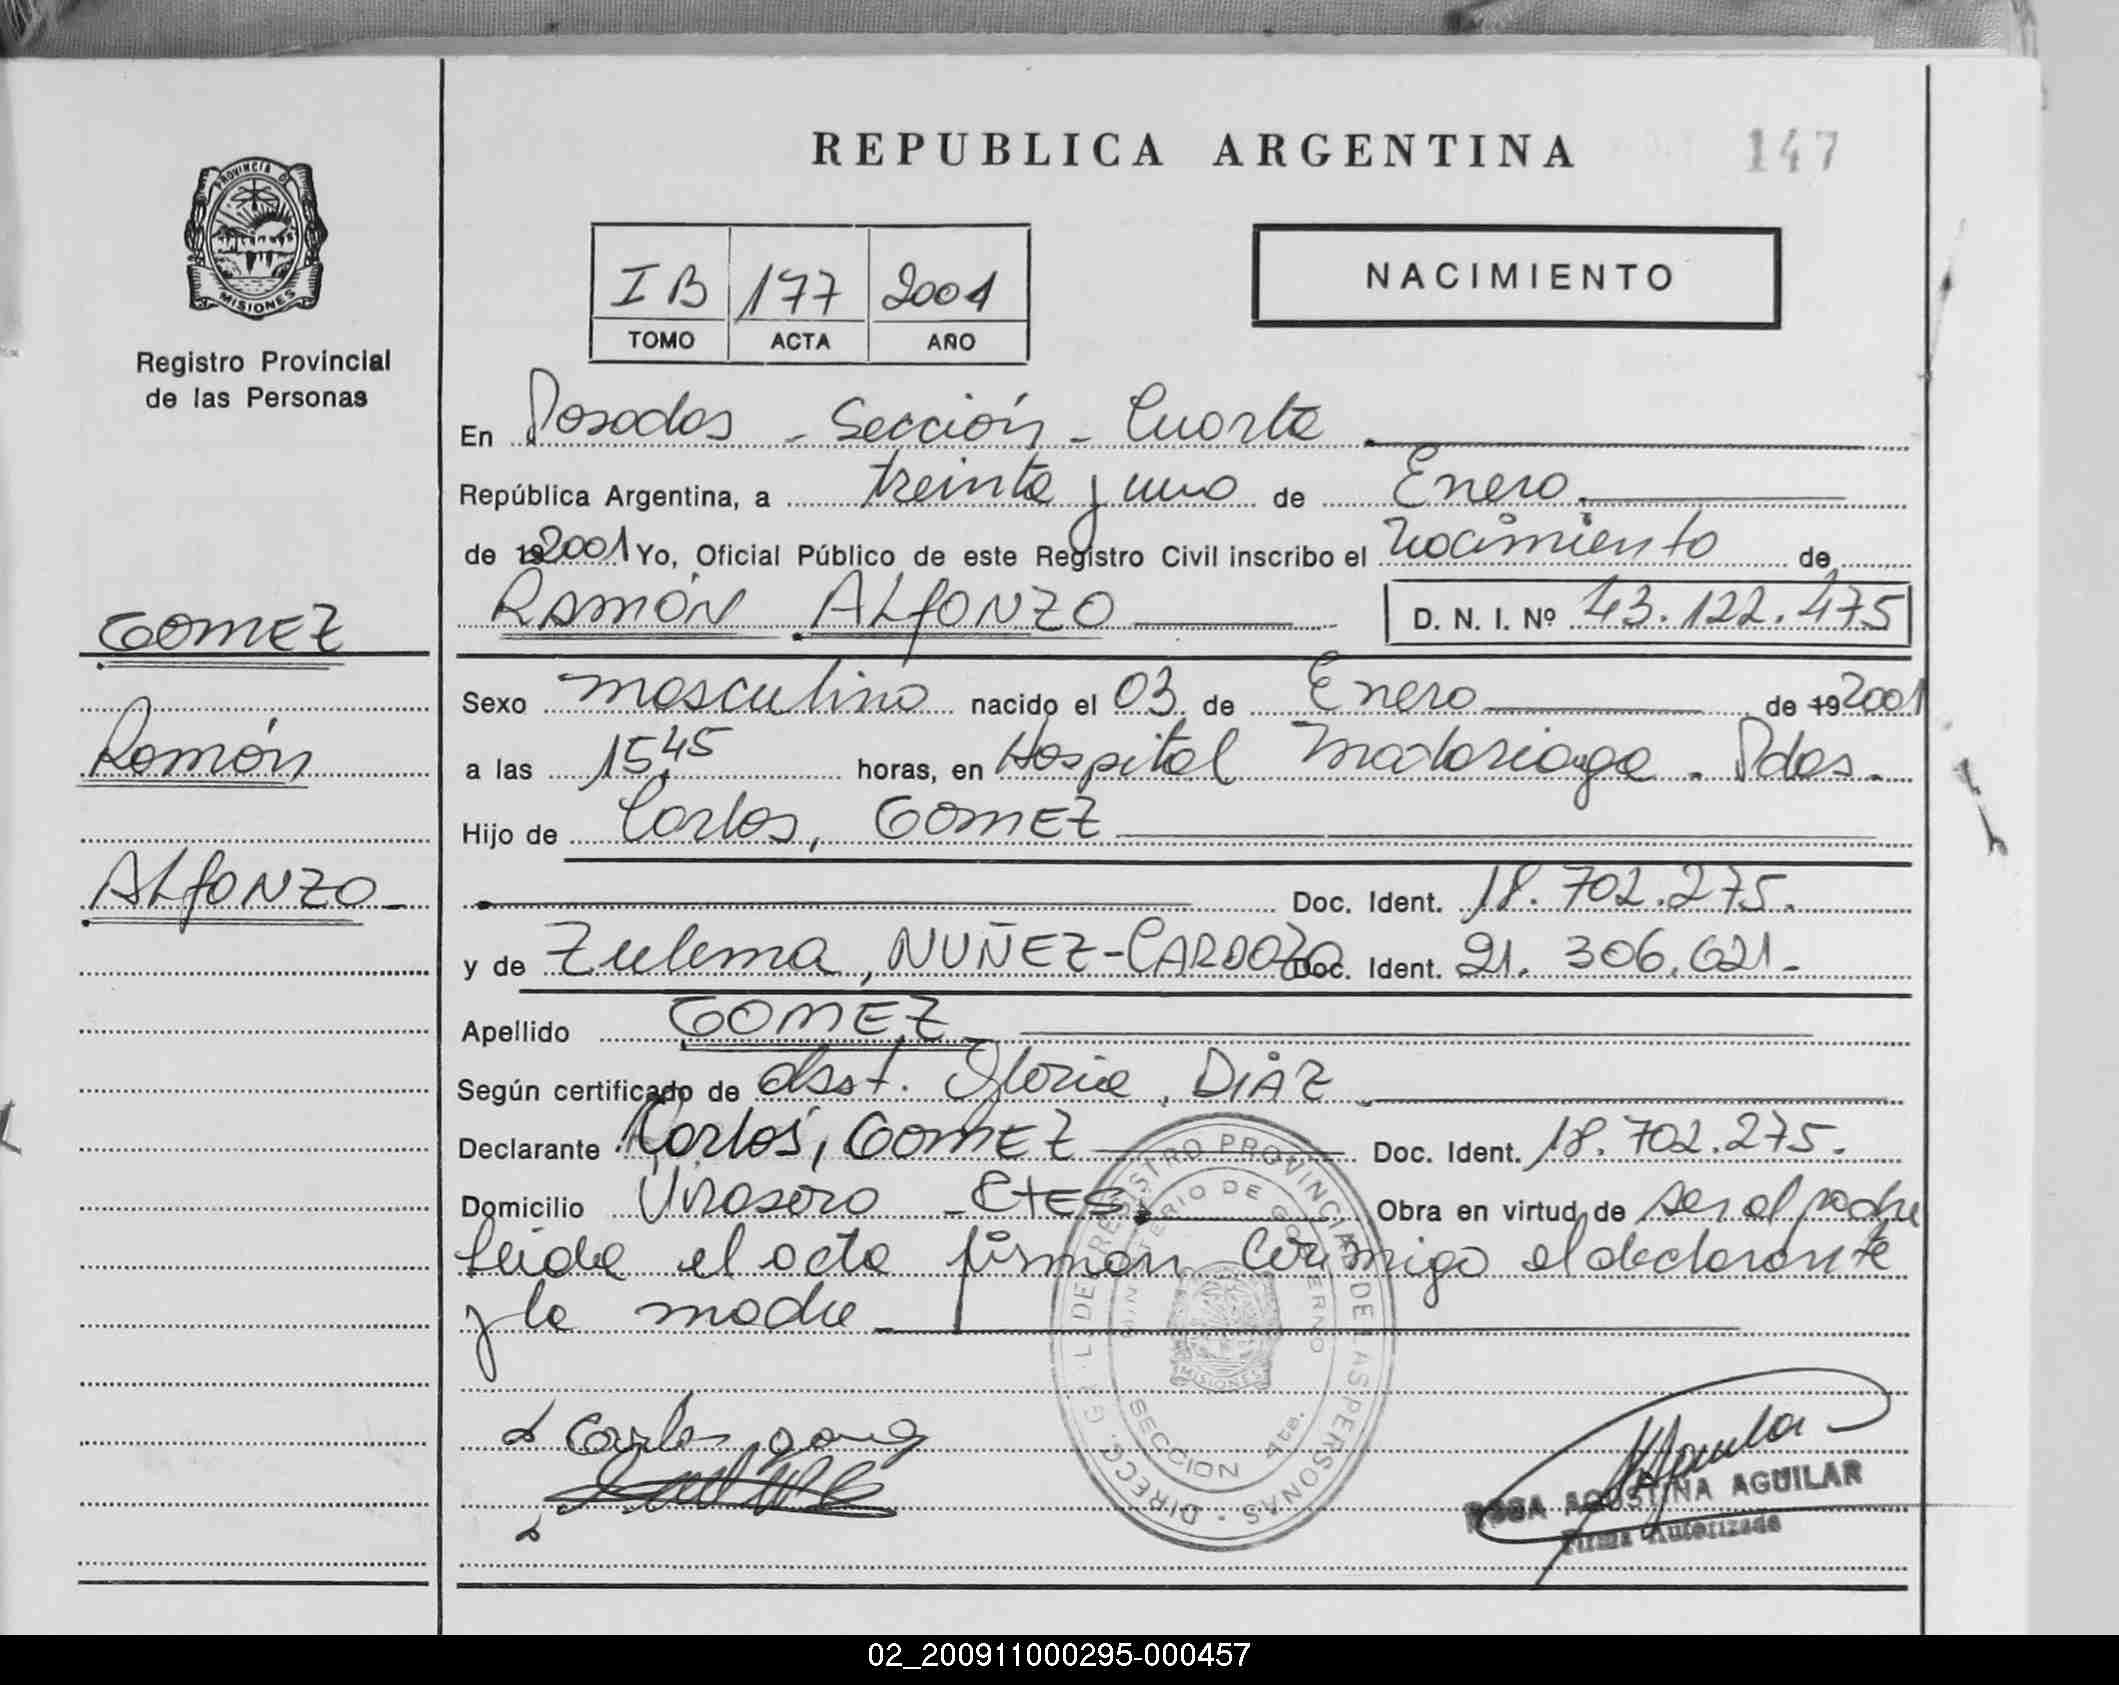 REPUBLICA ARGENTINA
147
PROVINCIA D
MISIONES
Registro Provincial
de las Personas
I B 177 2001
TOMO ACTA AÑO
NACIMIENTO
En Posadas - Sección - Cuarta
República Argentina, a treinta y uno de Enero
de 192001 Yo, Oficial Público de este Registro Civil inscribo el Nacimiento de
RAMÓN ALFONZO D. N. I. Nº 43.122.475
GOMEZ
Ramón
ALFONZO
Sexo masculino nacido el 03 de Enero de 192001
a las 15,45 horas, en Hospital Madariaga - Pdas.
Hijo de Carlos, GOMEZ
Doc. Ident. 18.702.275.
y de Zulema, NUÑEZ-CARDOZO Doc. Ident. 21.306.621-
Apellido GOMEZ
Según certificado de obst. Gloria, DIAZ
Declarante Carlos, GOMEZ Doc. Ident. 18.702.275.
Domicilio Virasoro - Ctes. Obra en virtud de ser el padre
Leída el acta firman conmigo el declarante
y la madre
DIRECC. GRAL. DEL REGISTRO PROVINCIAL DE LAS PERSONAS
MINISTERIO DE GOBIERNO
MISIONES
SECCION 4ta.
Carlos gomez
ROSA AGUSTINA AGUILAR
Firma Autorizada
02_200911000295-000457